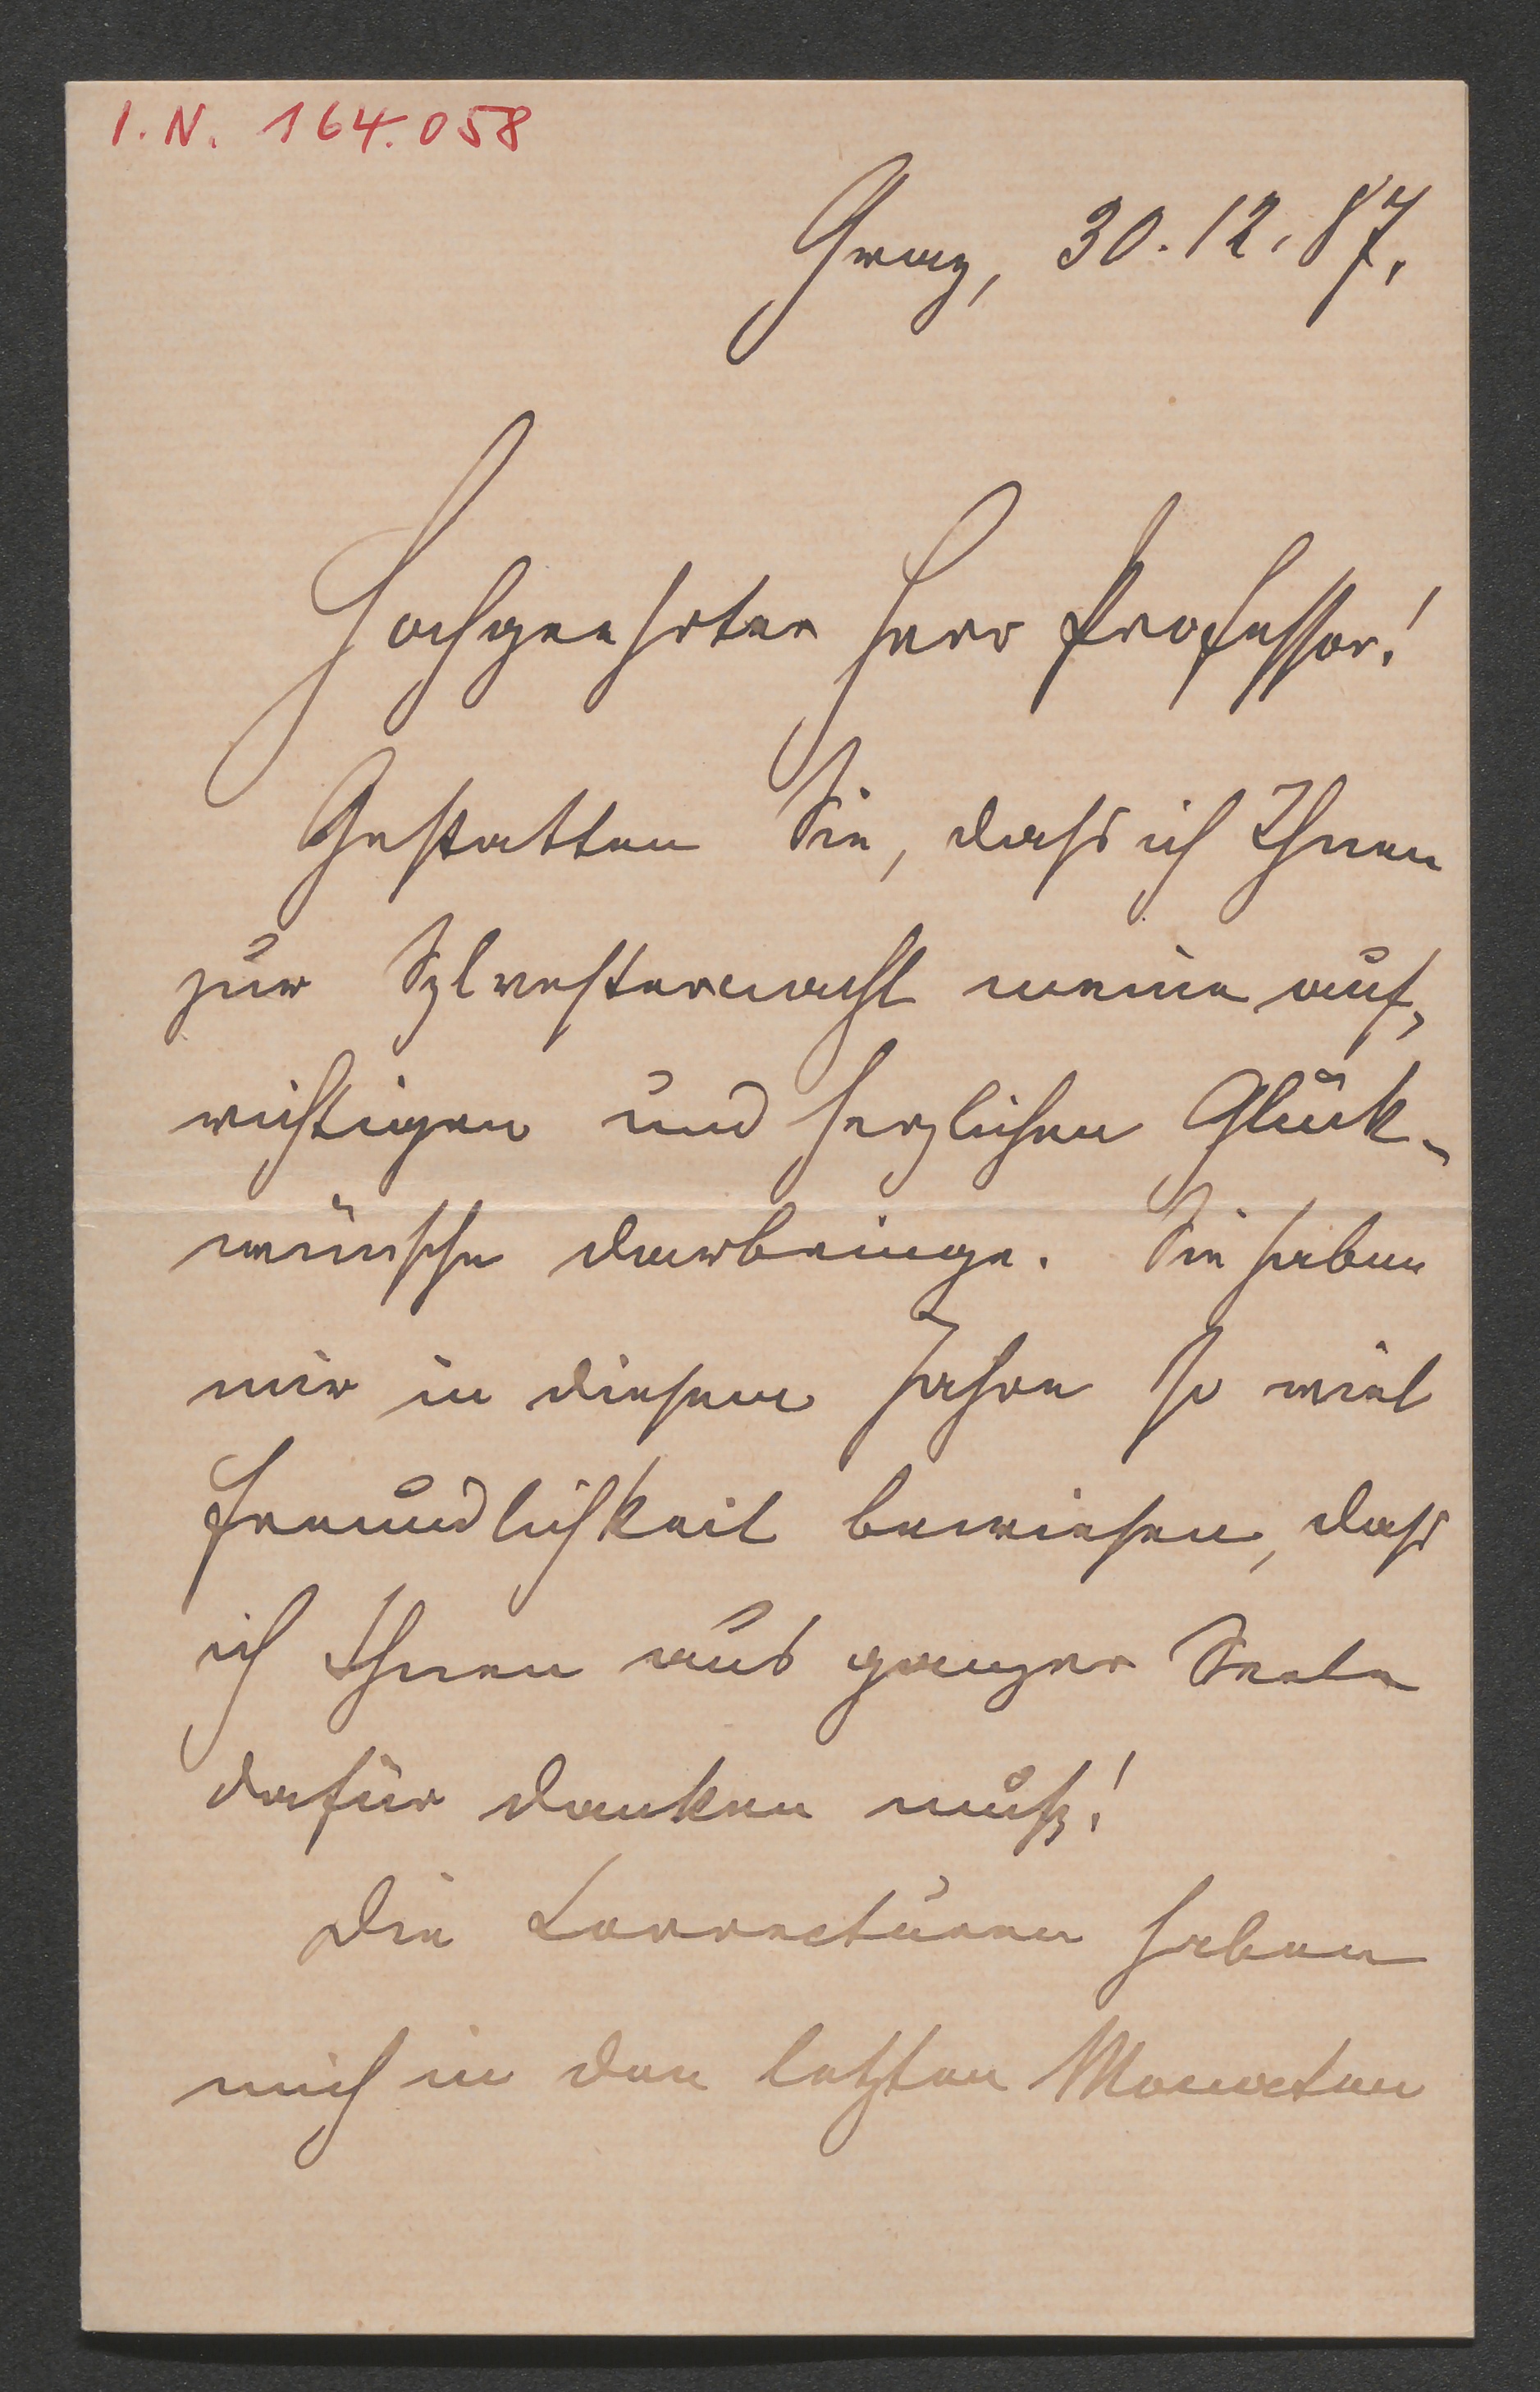 I. N. 164.058
Graz, 30. 12. 87.
Hochgeehrter Herr Professor!
Gestatten Sie, dass ich Ihnen
zur Sylvesternacht meine auf-
richtigen und herzlichen Glück-
wünsche darbringe. Sie haben
mir in diesem Jahre so viel
Freundlichkeit bewiesen, dass
ich Ihnen aus ganzer Seele
dafür danken muß!
Die Correcturen haben
mich in den letzten Monaten